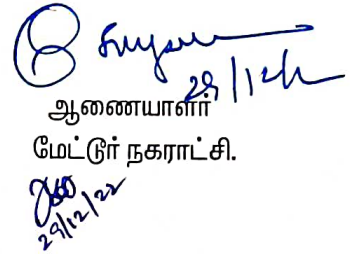 29/12/22
ஆணையாளர்
மேட்டூர் நகராட்சி.
29/12/22